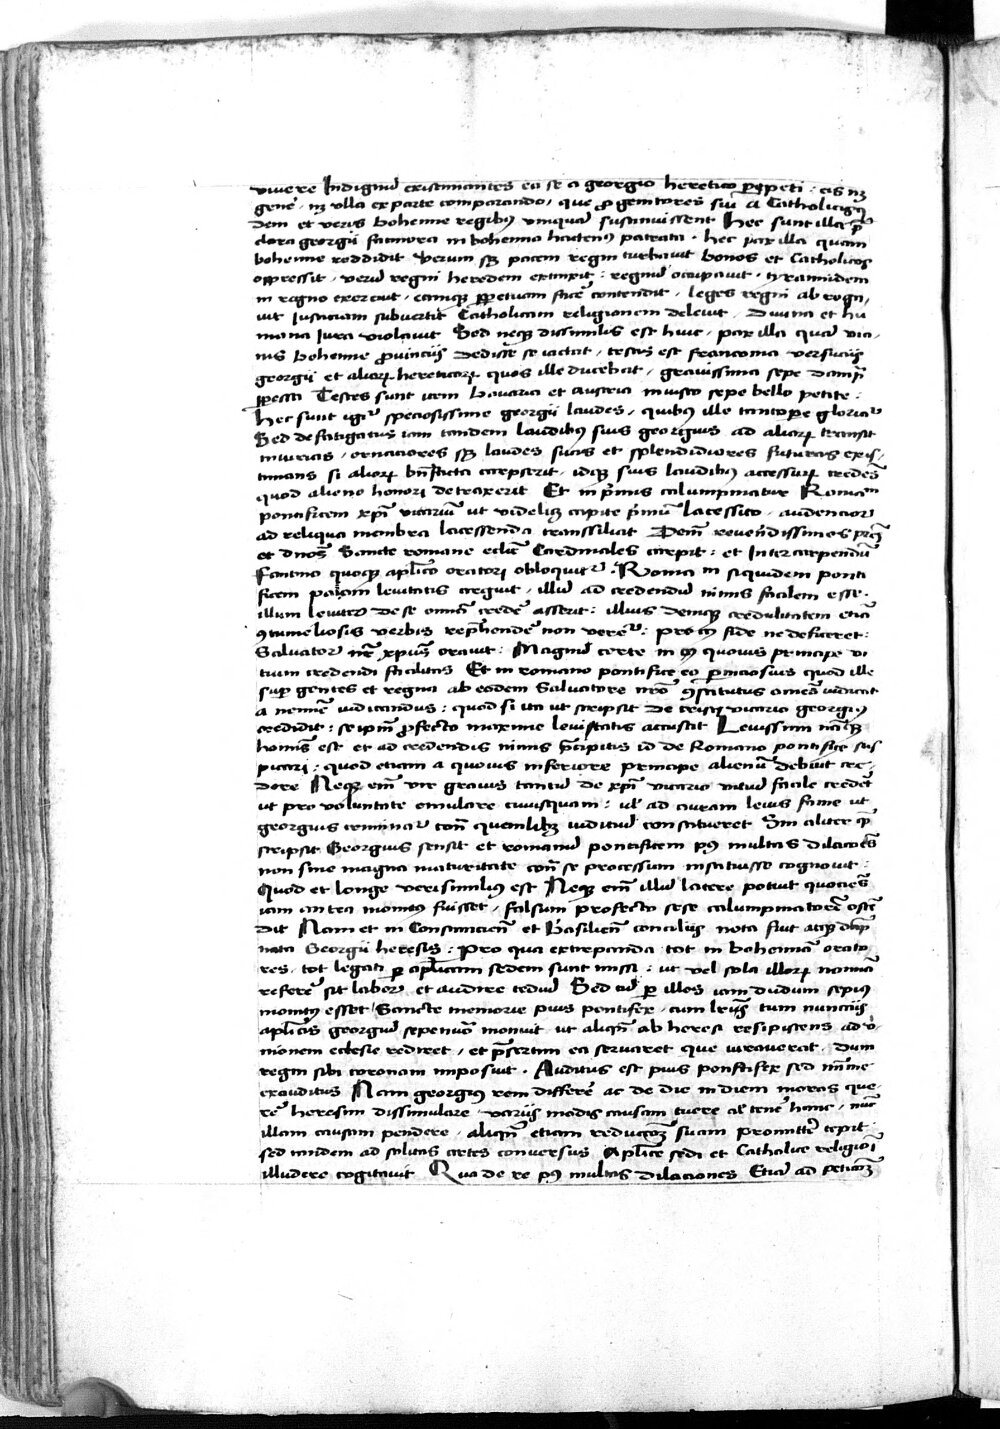 viuere Indignũ existimantes ea se a georgio heretico ꝑpeti : eis in
gene . in vlla ex parte comparando / que ꝓgenitores sui a Catholicis qͥ
dem et veris bohemie regibꝰ vnquã sustinuissent Hec sunt illa p̃
clara georgii facinora in bohemia hactenꝰ patrata . hec pax illa quam
bohemie reddidit Verum sꝫ pacem regni turbauit bonos et Catholicos
oppressit . verũ regni heredem extinxit : regnũ occupauit . tyramnidem
in regno exercuit . eamqꝫ ꝑpetuam facẽ contendit . leges regni abroga,
uit Iusticiam subuertit Catholicam religionem deleuit . Diuina et hu
mana Iura violauit Sed neqꝫ dissimilis est huic . pax illa quã vici,
nis bohemie ꝓuinciis dedisse se iactat . testis est franconia versuciis
georgii et alioꝝ hereticoꝝ quos ille ducebat , grauissima sepe dampna
ꝑpessa Testes sunt item bauaria et austria iniusto sepe bello petite :
Hec sunt igiᷣ speciosissime georgii laudes , quibus ille tantoꝑe gloriaᷣ
Sed defatigatus iam tandem laudibꝰ suis georgius ad alioꝝ transit
iniurias . ornaciores sꝫ laudes suas et splendidiores futuras exis,
timans si alioꝝ bñfacta carpserit . idqꝫ suis laudibꝰ accessuꝝ credẽs
quod alieno honori detraxerit Et in p̃mis calumpniatur Romanũ
pontificem xp̃i vicarium ut videlicꝫ capite p̃mũ lacessito . audencior
ad reliqua membra lacessenda transsiliat Dein reuerẽdissimos p̃res
et dños Sancte romane eccl̃ie Cardinales carpit : et Inter carpendũ
fantino quoqꝫ ap̃lico oratori obloquitᷣ . Romanũ siquidem ponti
ficem palam leuitatis arguit . illũ ad credendũ nimis facilem esse .
illum leuiter de se omnia crede asserit : illius deniqꝫ credulitatem etiã
ꝯtumeliosis verbis rep̃hendẽ non vereᷣ : pro cuiꝰ fide ne deficeret :
Saluator nr̃ xp̃us orauit : Magnũ certe in quouis principe vi
tium credendi facilitas Et in romano pontifice eo ꝑniciosius quod ille
sup gentes et regna ab eodem Saluatore nr̃o ꝯstitutus om̃es iudicat
a nemine iudicandus : quod si ita ut scripsit de cristi vicario georgius
credidit : se ip̃m ꝓfecto maxime leuitatis accusat Leuissimi namqꝫ
hom̃is est et ad credendũ nimis p̃cipitis id de Romano pontifice sus
picari : quod etiam a quouis inferiore principe alienũ debuit cre,
dere Neqꝫ em̃ vir grauis tantũ de xp̃i vicario vitiũ facile crederet
ut pro voluntate emulare cuiusquam : ul ad auram leuis fame ut
georgius criminaᷣ contra quemlibꝫ iuditiũ constitueret Sin aliter qͣm
scripsit Georgius sensit et romanũ pontificem pꝰ multas dilaciões
non sine magna maturitate contra se processum instituisse cognouit :
Quod et longe verisimiliꝰ est Neqꝫ em̃ illũ latere potuit quociẽs
iam antea monitꝰ fuisset , falsum profecto sese calumpniatorẽ osten
dit Nam et in Constancien̄ et Basilien̄ conciliis nota fuit atqꝫ damp
nata Georgii heresis : Pro qua extirpanda tot in bohemiã orato
res , tot legati ꝑ ap̃licam sedem sunt missi : ut vel sola illoꝝ nomina
referre sit labor et audire tediũ Sed cũ ꝑ illos iam dudum sepius
monitꝰ esset Sancte memorie pius pontifex . cum lr̃is tum nunciis
ap̃licis georgiũ sepenuõ monuit ut aliqñ ab heresi resipiscens ad v,
nionem ecclesie rediret , et p̃sertim ea seruaret que iurauerat . dum
regni sibi coronam imposuit . Auditus est pius pontifex sed minime
exauditus Nam georgiꝰ rem differre ac de die in diem moras que,
rere heresim dissimulare variis modis causam tuere ac tenẽ hanc , nũc
illam causam pendere . aliqñ etiam reductionẽ suam promittere cepit
sed tandem ad solitas artes conuersus Ap̃lice sedi et Catholice religioni
illudere cogitauit Qua de re pꝰ multas dilaciones Etiã ad peticionẽ